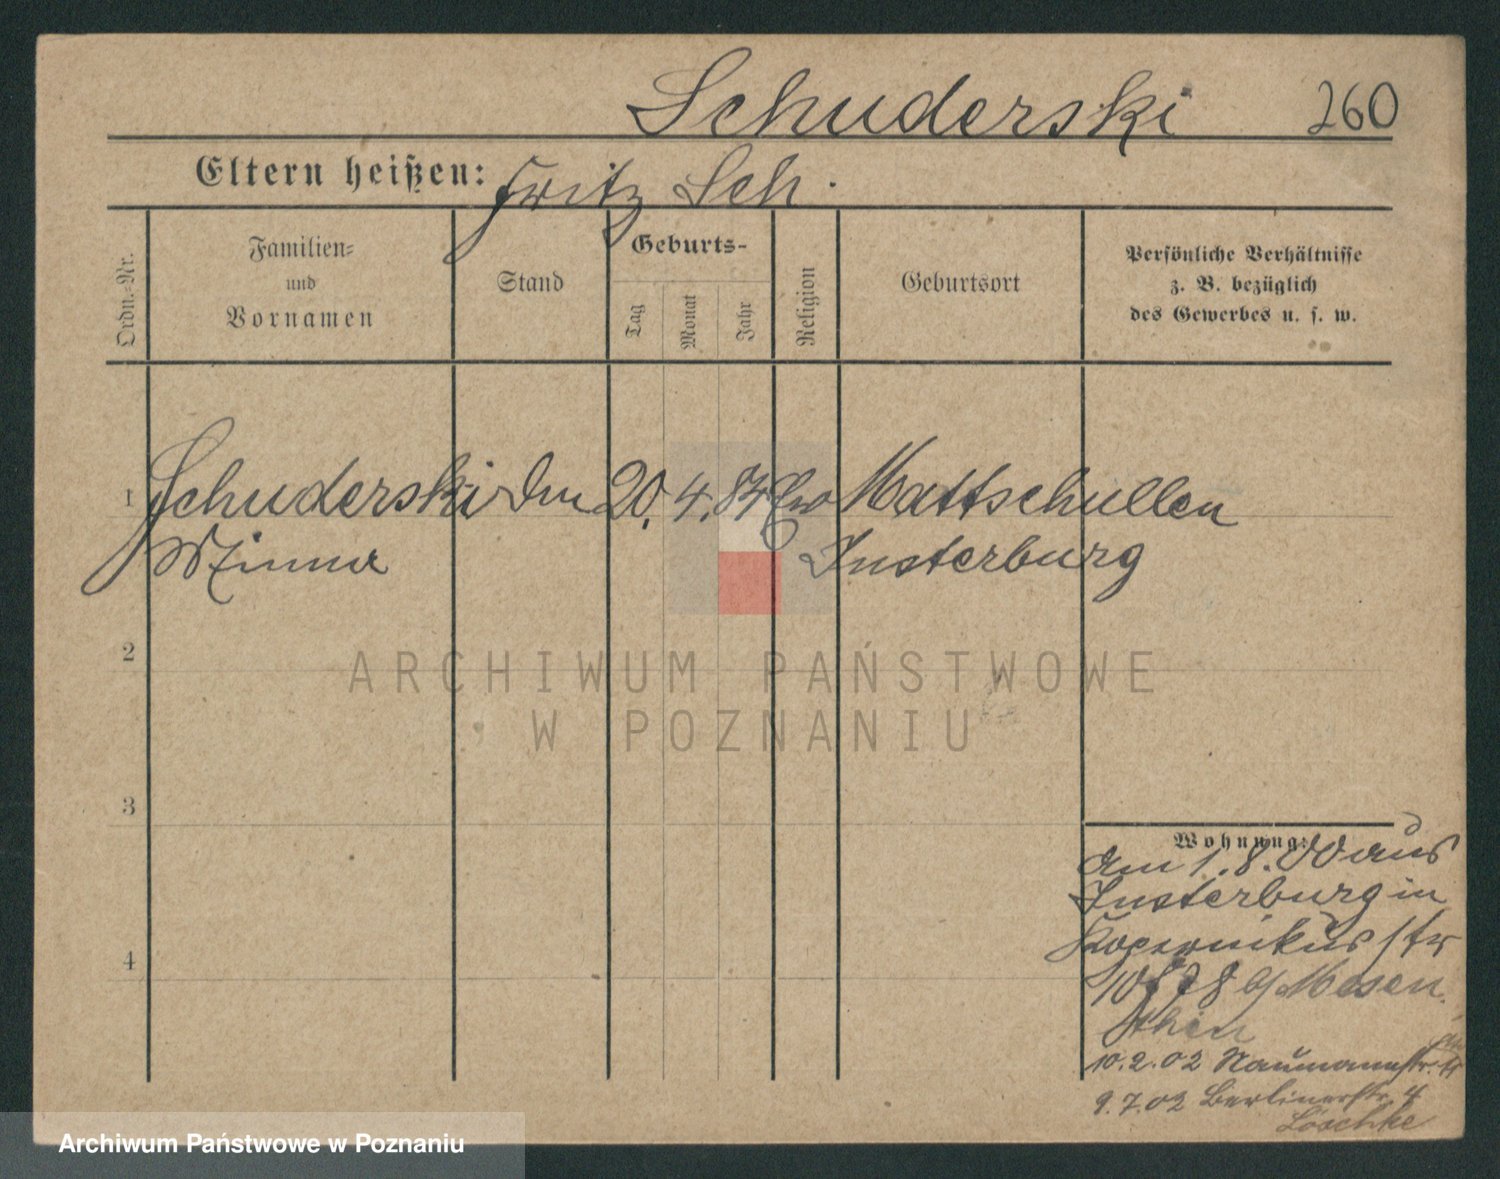 Schuderski 260
Eltern heißen: Fritz Sch.
Ordn.-Nr.
Familien-
und
Vornamen
Stand
Geburts-
Tag
Monat
Jahr
Religion
Geburtsort
Persönliche Verhältnisse
z. B. bezüglich
des Gewerbes u. s. w.
1 Schuderski 20. 4. 84 Ev Mattschullen
Minna Insterburg
2
ARCHIWUM PAŃSTWOWE
W POZNANIU
3
4
Wohnung:
am 1. 8. 00 aus
Insterburg in
Kopernikusstr
Mesen
thin
10.2.02 Naumannstr.
9.7.02 Berlinerstr. 4
Löschke
Archiwum Państwowe w Poznaniu